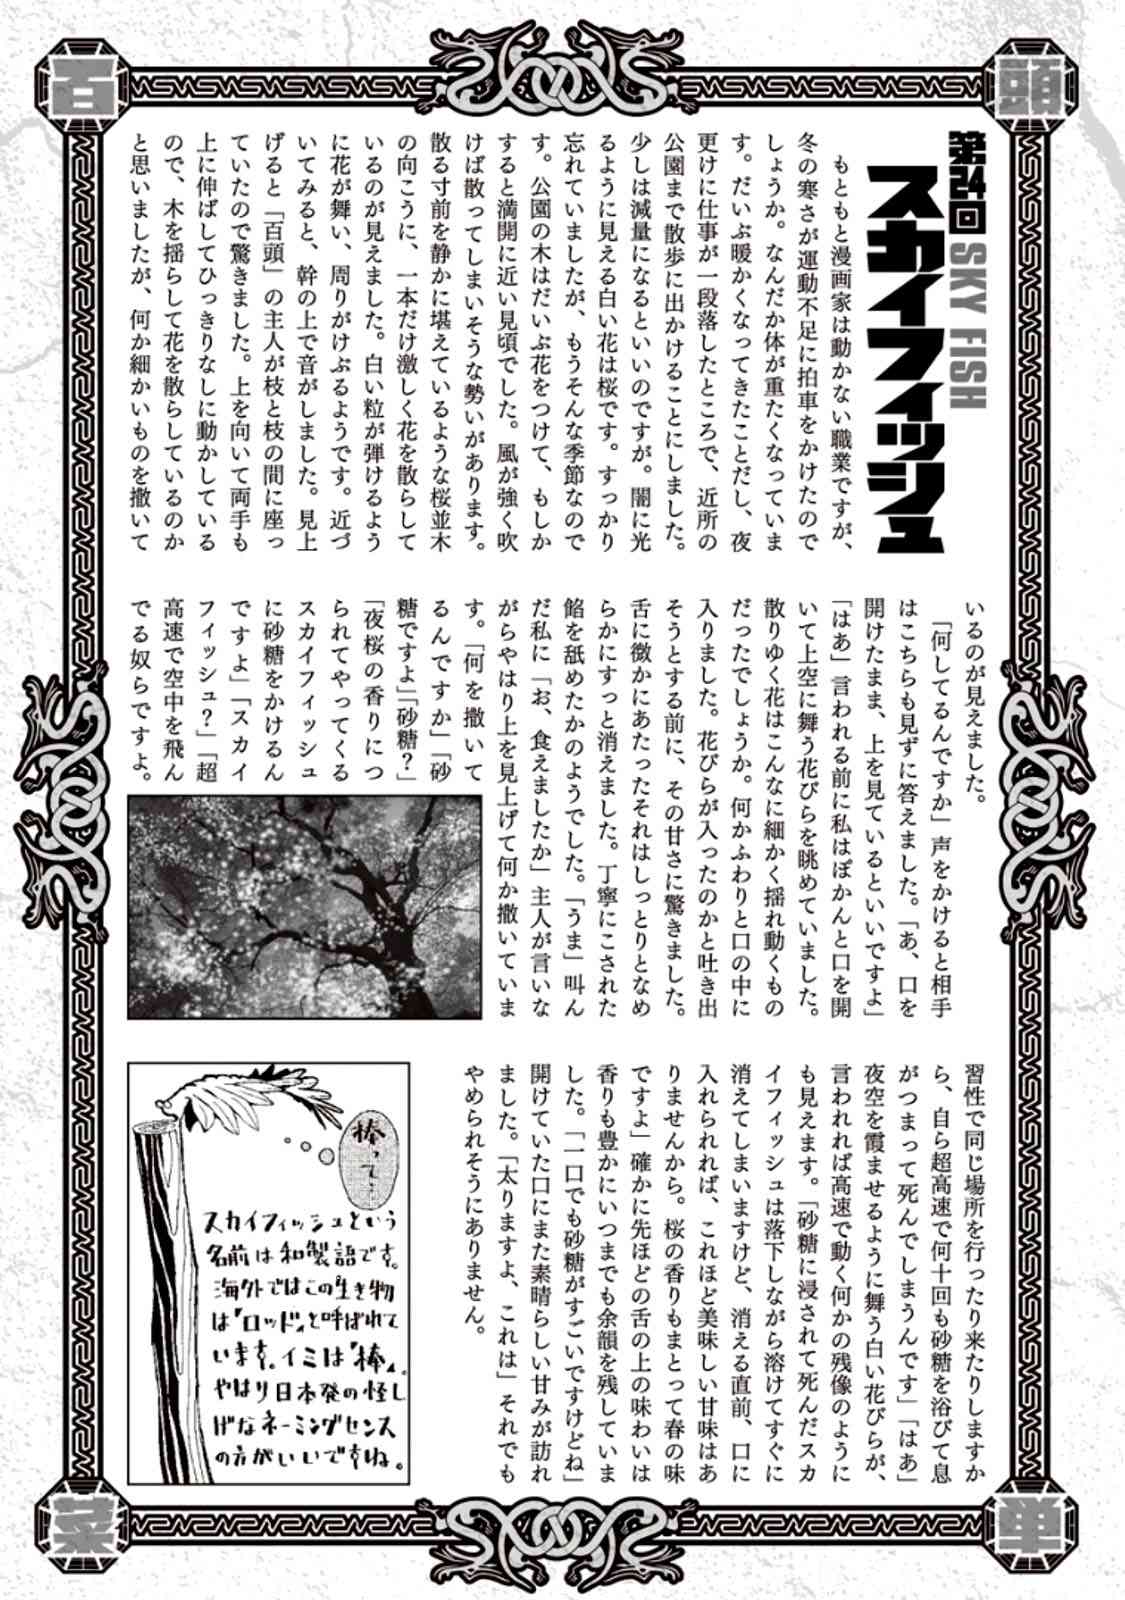 百
頭
菜
単
第24回
SKY FISH
スカイフィッシュ
もともと漫画家は動かない職業ですが、
冬の寒さが運動不足に拍車をかけたので
しょうか。なんだか体が重たくなっていま
す。だいぶ暖かくなってきたことだし、夜
更けに仕事が一段落したところで、近所の
公園まで散歩に出かけることにしました。
少しは減量になるといいのですが。闇に光
るように見える白い花は桜です。すっかり
忘れていましたが、もうそんな季節なので
す。公園の木はだいぶ花をつけて、もしか
すると満開に近い見頃でした。風が強く吹
けば散ってしまいそうな勢いがあります。
散る寸前を静かに堪えているような桜並木
の向こうに、一本だけ激しく花を散らして
いるのが見えました。白い粒が弾けるよう
に花が舞い、周りがけぶるようです。近づ
いてみると、幹の上で音がしました。見上
げると「百頭」の主人が枝と枝の間に座っ
ていたので驚きました。上を向いて両手も
上に伸ばしてひっきりなしに動かしている
ので、木を揺らして花を散らしているのか
と思いましたが、何か細かいものを撒いて
いるのが見えました。
「何してるんですか」声をかけると相手
はこちらも見ずに答えました。「あ、口を
開けたまま、上を見ているといいですよ」
「はあ」言われる前に私はぽかんと口を開
いて上空に舞う花びらを眺めていました。
散りゆく花はこんなに細かく揺れ動くもの
だったでしょうか。何かふわりと口の中に
入りました。花びらが入ったのかと吐き出
そうとする前に、その甘さに驚きました。
舌に微かにあたったそれはしっとりとなめ
らかにすっと消えました。丁寧にこされた
餡を舐めたかのようでした。「うま」叫ん
だ私に「お、食えましたか」主人が言いな
がらやはり上を見上げて何か撒いていま
す。「何を撒いて
るんですか」「砂
糖ですよ」「砂糖？」
「夜桜の香りにつ
られてやってくる
スカイフィッシュ
に砂糖をかけるん
ですよ」「スカイ
フィッシュ？」「超
高速で空中を飛ん
でる奴らですよ。
習性で同じ場所を行ったり来たりしますか
ら、自ら超高速で何十回も砂糖を浴びて息
がつまって死んでしまうんです」「はあ」
夜空を霞ませるように舞う白い花びらが、
言われれば高速で動く何かの残像のように
も見えます。「砂糖に浸されて死んだスカ
イフィッシュは落下しながら溶けてすぐに
消えてしまいますけど、消える直前、口に
入れられれば、これほど美味しい甘味はあ
りませんから。桜の香りもまとって春の味
ですよ」確かに先ほどの舌の上の味わいは
香りも豊かにいつまでも余韻を残していま
した。「一口でも砂糖がすごいですけどね」
開けていた口にまた素晴らしい甘みが訪れ
ました。「太りますよ、これは」それでも
やめられそうにありません。
棒って…
スカイフィッシュという
名前は和製語です。
海外ではこの生き物
は「ロッド」と呼ばれて
います。イミは「棒」。
やはり日本発の怪し
げなネーミングセンス
の方がいいですね。